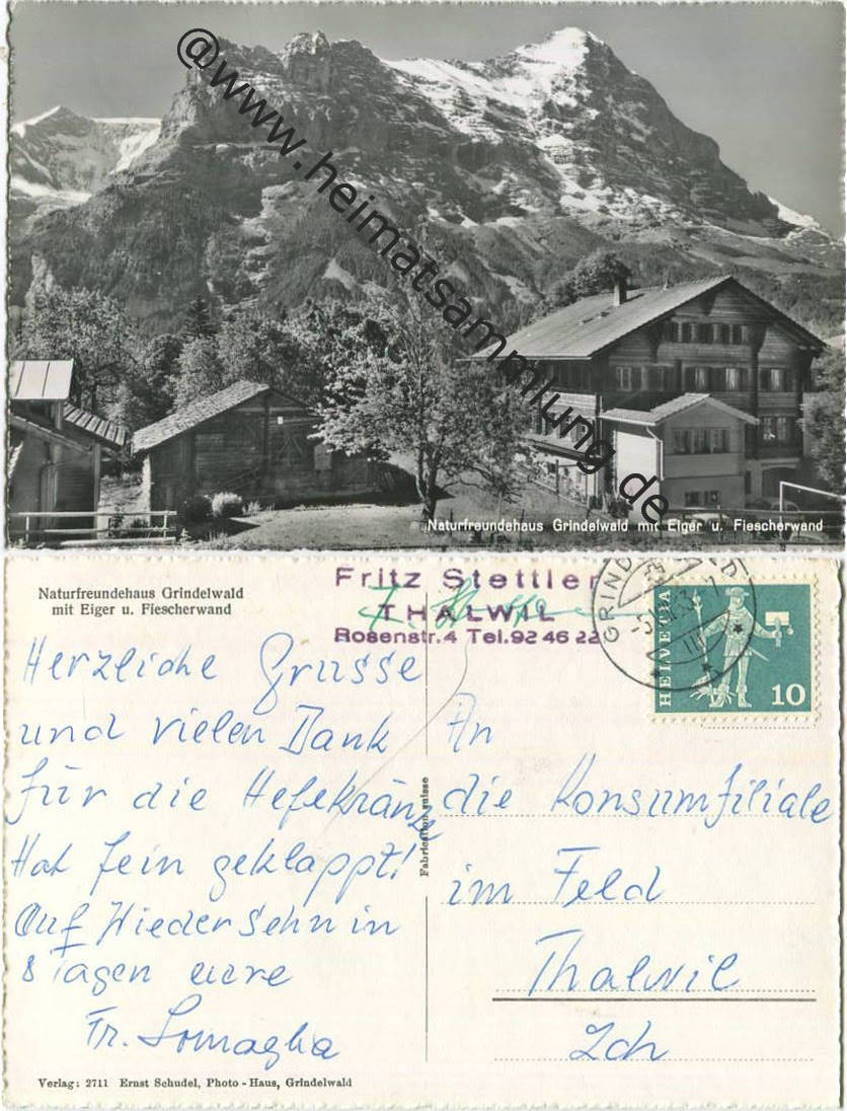 @www.heimatsammlung.de
Naturfreundehaus Grindelwald mit Eiger u. Fiescherwand
Naturfreundehaus Grindelwald
mit Eiger u. Fiescherwand
Fritz Stettler
THALWIL
Rosenstr. 4 Tel. 92 46 22
GRINDELWALD
HELVETIA
10
Herzliche Grüsse
und vielen Dank
für die Hefekränze
Hat fein geklappt!
Auf Wiedersehn in
8 Tagen eure
Fr. Lomaglia
Fabrication suisse
An
die Konsumfiliale
im Feld
Thalwil
Zch
Verlag: 2711 Ernst Schudel, Photo-Haus, Grindelwald